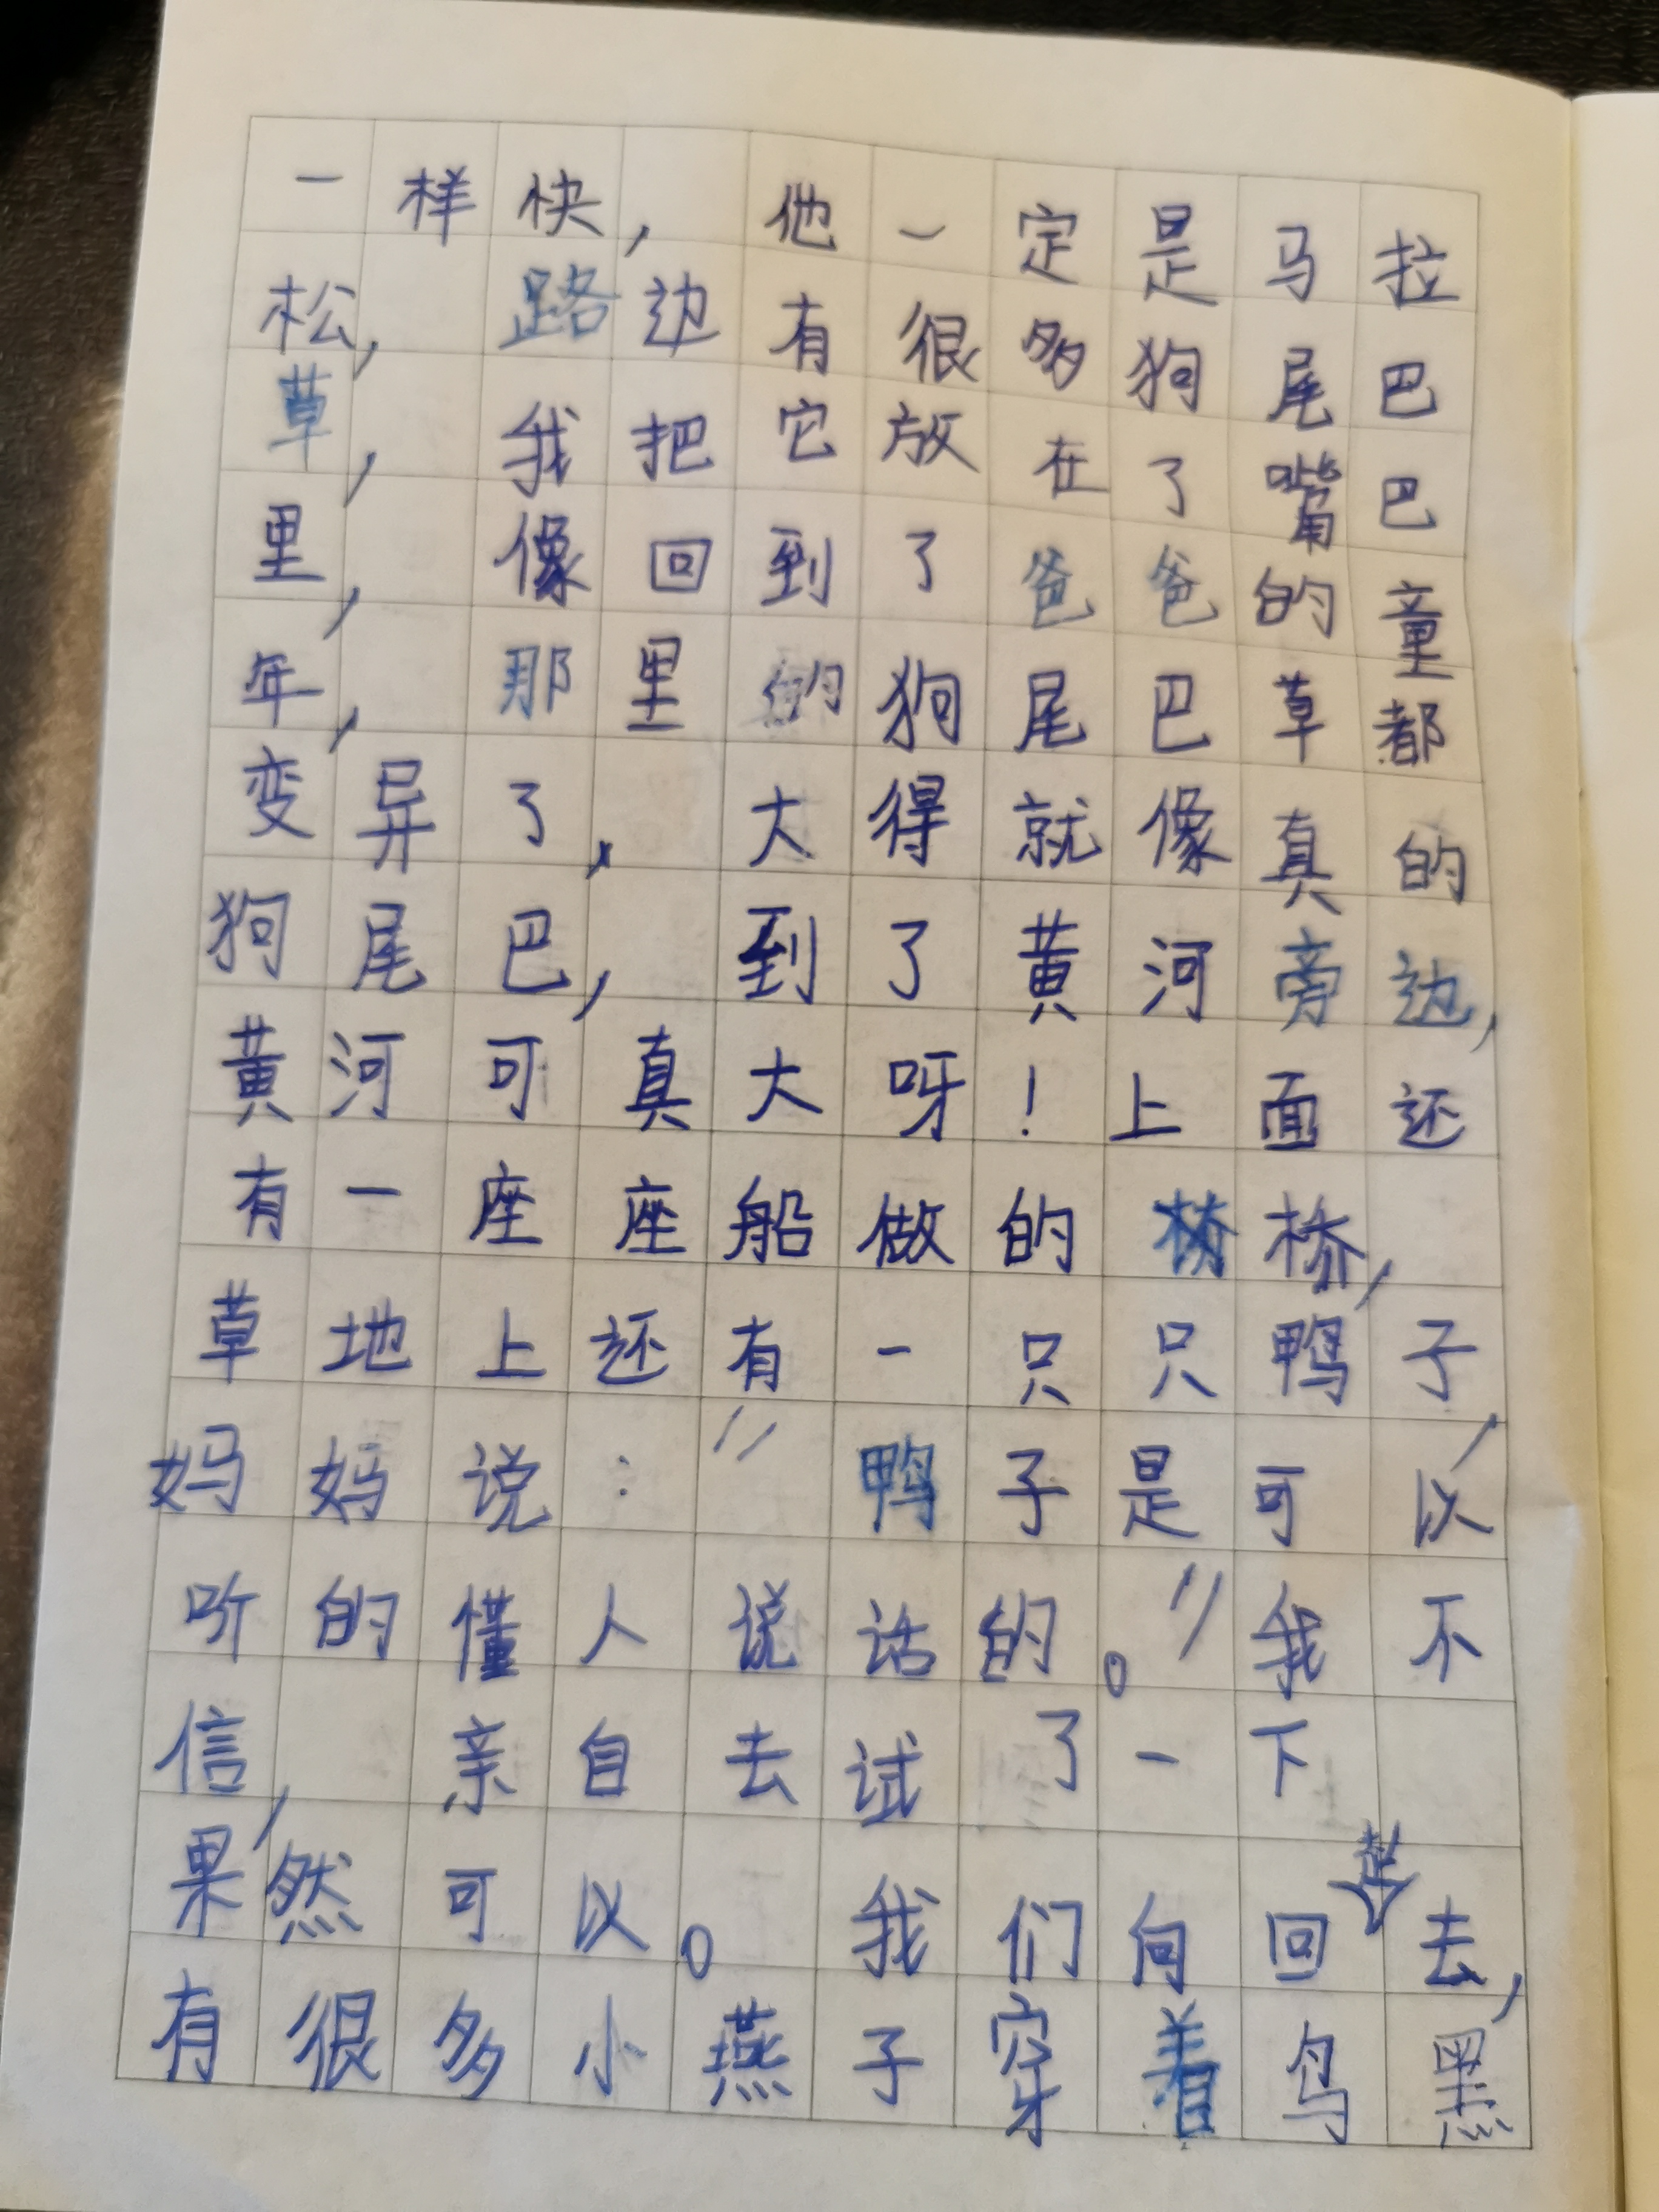 一样快，他一定是马拉
松，路边有很多狗尾巴
草，我把它放在了嘴巴
里，像回到了爸爸的童
年，那里的狗尾巴草都
变异了，大得就像真的
狗尾巴，到了黄河旁边，
黄河可真大呀！上面还
有一座座船做的桥，
草地上还有一只只鸭子，
妈妈说：“鸭子是可以
听的懂人说话的。”我不
信，亲自去试了一下
果然可以。我们向回走去，
有很多小燕子穿着鸟黑